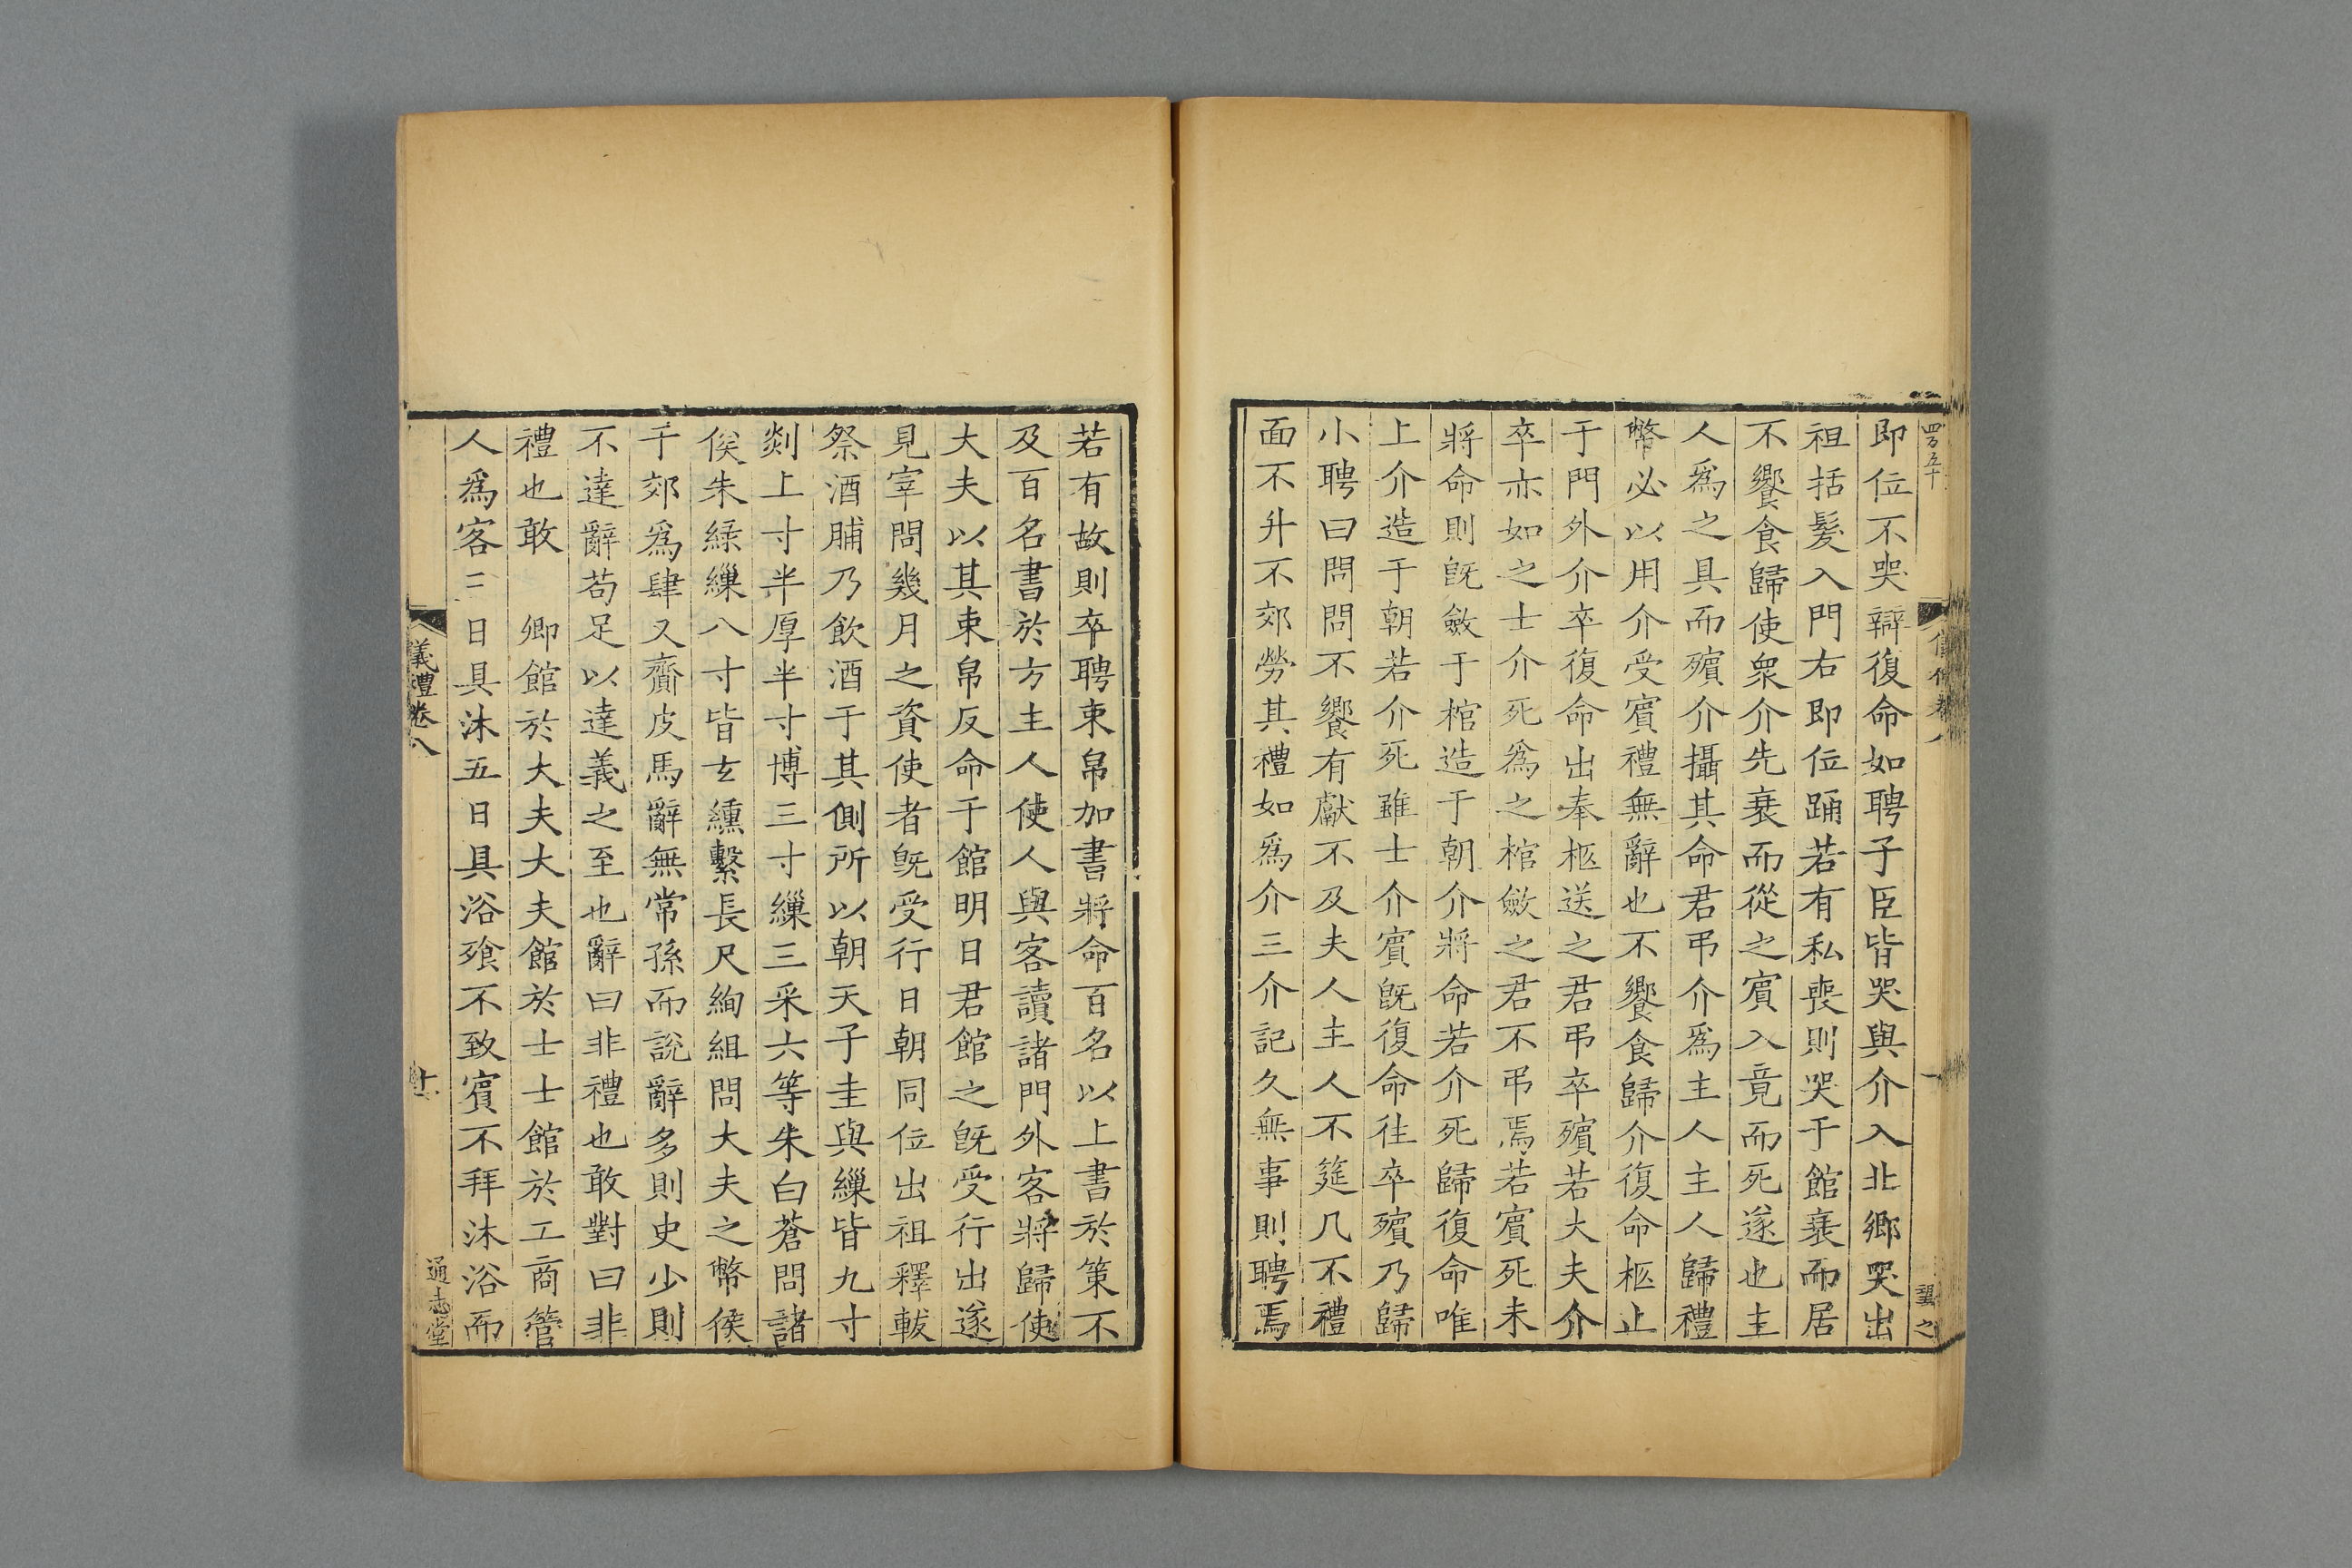 即位不哭辯復命如聘子臣皆哭與介入北鄉哭出
祖括髮入門右即位踊若有私喪則哭于館衰而居
不饗食歸使衆介先衰而從之賔入竟而死遂也主
人爲之具而殯介攝其命君弔介爲主人主人歸禮
幣必以用介受賔禮無辭也不饗食歸介復命柩止
于門外介卒復命出奉柩送之君弔卒殯若大夫介
卒亦如之士介死爲之棺斂之君不弔焉若賔死未
將命則旣斂于棺造于朝介將命若介死歸復命唯
上介造于朝若介死雖士介賔旣復命往卒殯乃歸
小聘曰問問不饗有獻不及夫人主人不筵几不禮
面不升不郊勞其禮如爲介三介記久無事則聘焉
若有故則卒聘束帛加書將命百名以上書於策不
及百名書於方主人使人與客讀諸門外客將歸使
大夫以其束帛反命于館明日君館之旣受行出遂
見宰問幾月之資使者旣受行日朝同位出祖釋軷
祭酒脯乃飲酒于其側所以朝天子圭與繅皆九寸
剡上寸半厚半寸博三寸繅三采六等朱白蒼問諸
侯朱綠繅八寸皆玄纁繫長尺絢組問大夫之幣俟
于郊爲肆又齎皮馬辭無常孫而說辭多則史少則
不達辭苟足以達義之至也辭曰非禮也敢對曰非
禮也敢 卿館於大夫大夫館於士士館於工商管
人爲客三日具沐五日具浴飧不致賔不拜沐浴而
儀禮卷八
通志堂